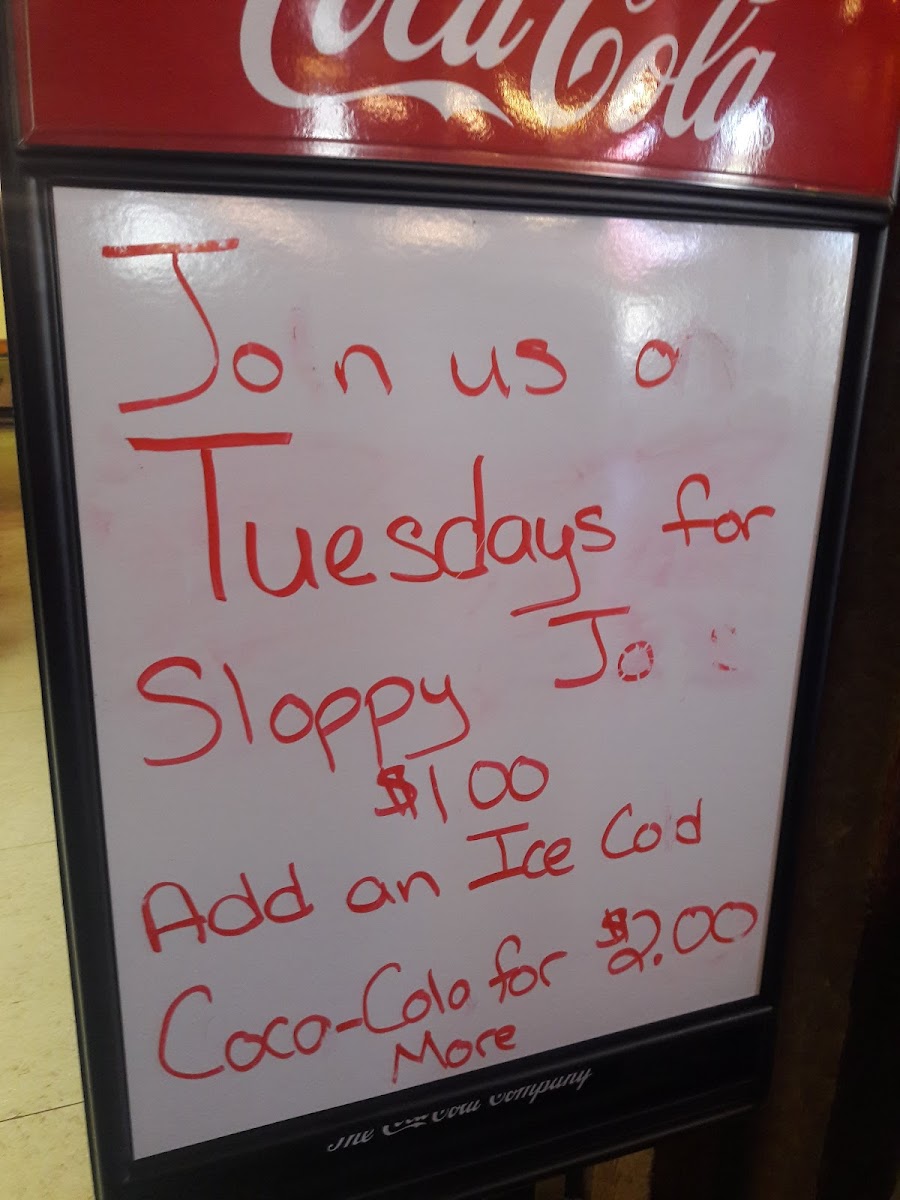 Coca-Cola
Jo n us o
Tuesdays for
Sloppy Jo s
$1 00
Add an Ice Cold
Coca-Cola for $2.00
More
The Coca-Cola Company